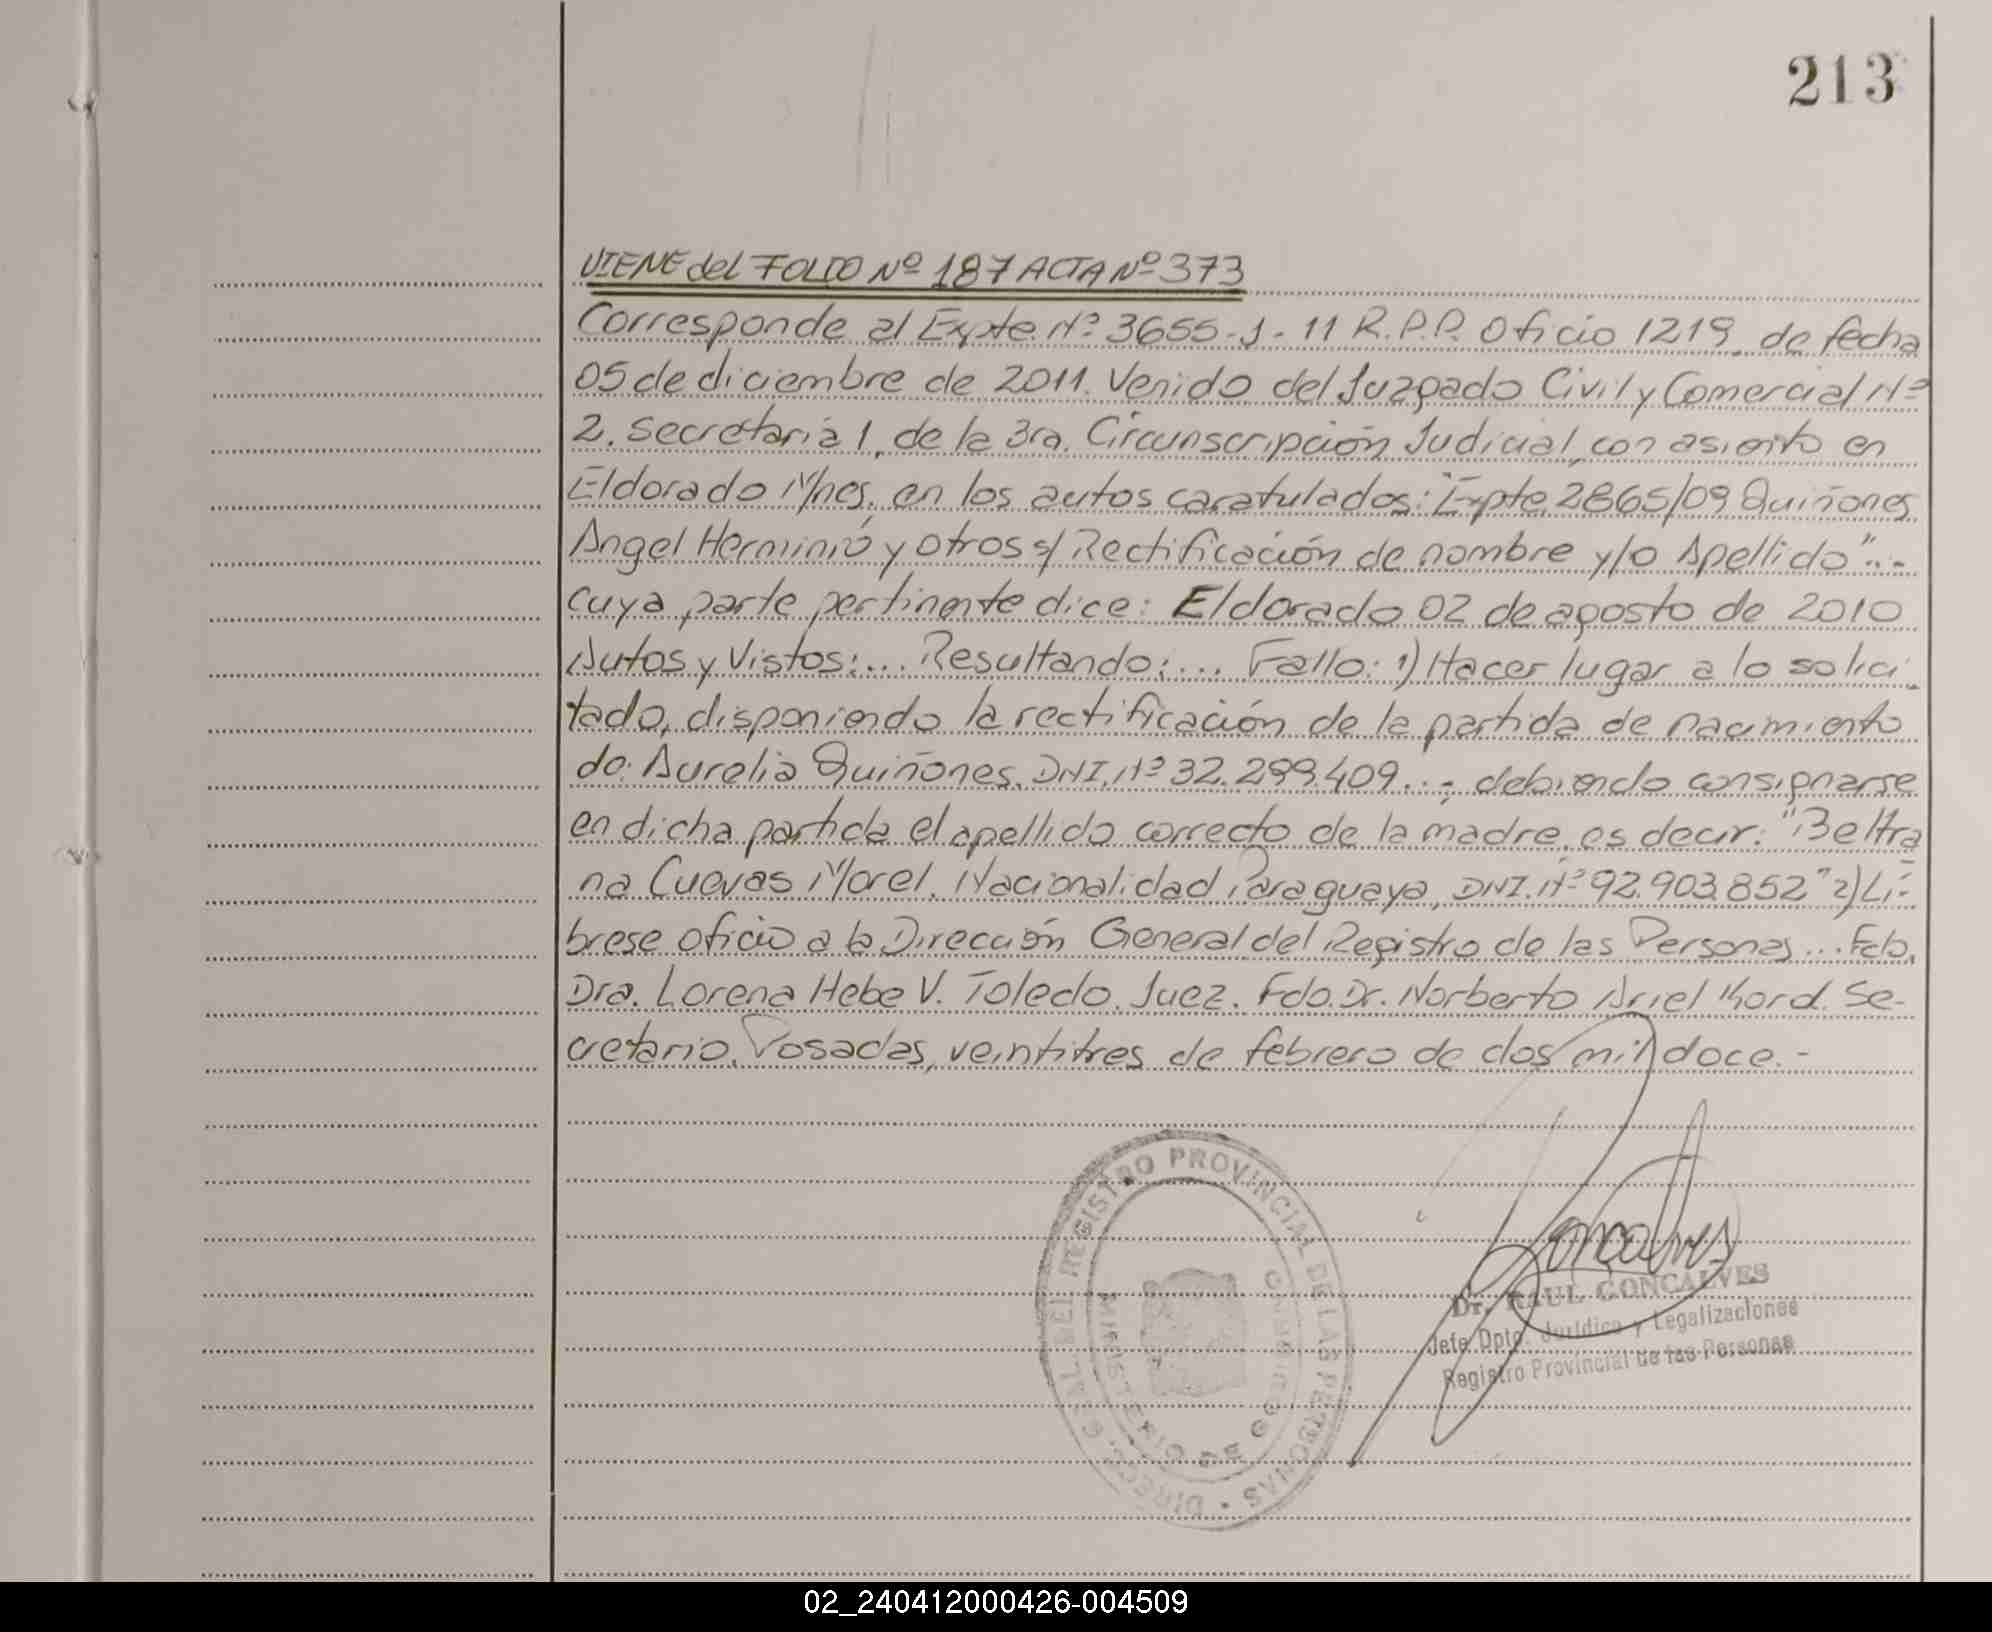 213
VIENE del FOLIO Nº 187 ACTA Nº 373
Corresponde al Expte. Nº 3655-J-11 R.P.P. Oficio 1219, de fecha
05 de diciembre de 2011. Venido del Juzgado Civil y Comercial Nº
2, Secretaria 1, de la 3ra. Circunscripción Judicial, con asiento en
Eldorado Mnes. en los autos caratulados: "Expte. 2865/09 Quiñones
Angel Herminio y otros s/ Rectificación de nombre y/o Apellido"..-
cuya parte pertinente dice: Eldorado 02 de agosto de 2010
Autos y Vistos:... Resultando:... Fallo: 1) Hacer lugar a lo solici-
tado, disponiendo la rectificación de la partida de nacimiento
de: Aurelia Quiñones, DNI. Nº 32.299.409...; debiendo consignarse
en dicha partida el apellido correcto de la madre, es decir: "Beltra
na Cuevas Morel, Nacionalidad Paraguaya, DNI. Nº 92.903.852" 2) Lí-
brese oficio a la Dirección General del Registro de las Personas... Fdo.
Dra. Lorena Hebe V. Toledo. Juez. Fdo. Dr. Norberto Ariel Kord. Se-
cretario. Posadas, veintitres de febrero de dos mil doce.-
DIRECC. GRAL. DEL REGISTRO PROVINCIAL DE LAS PERSONAS
MINISTERIO DE GOBIERNO
Goncalves
Dr. RAUL GONCALVES
Jefe Dpto. Jurídico y Legalizaciones
Registro Provincial de las Personas
02_240412000426-004509